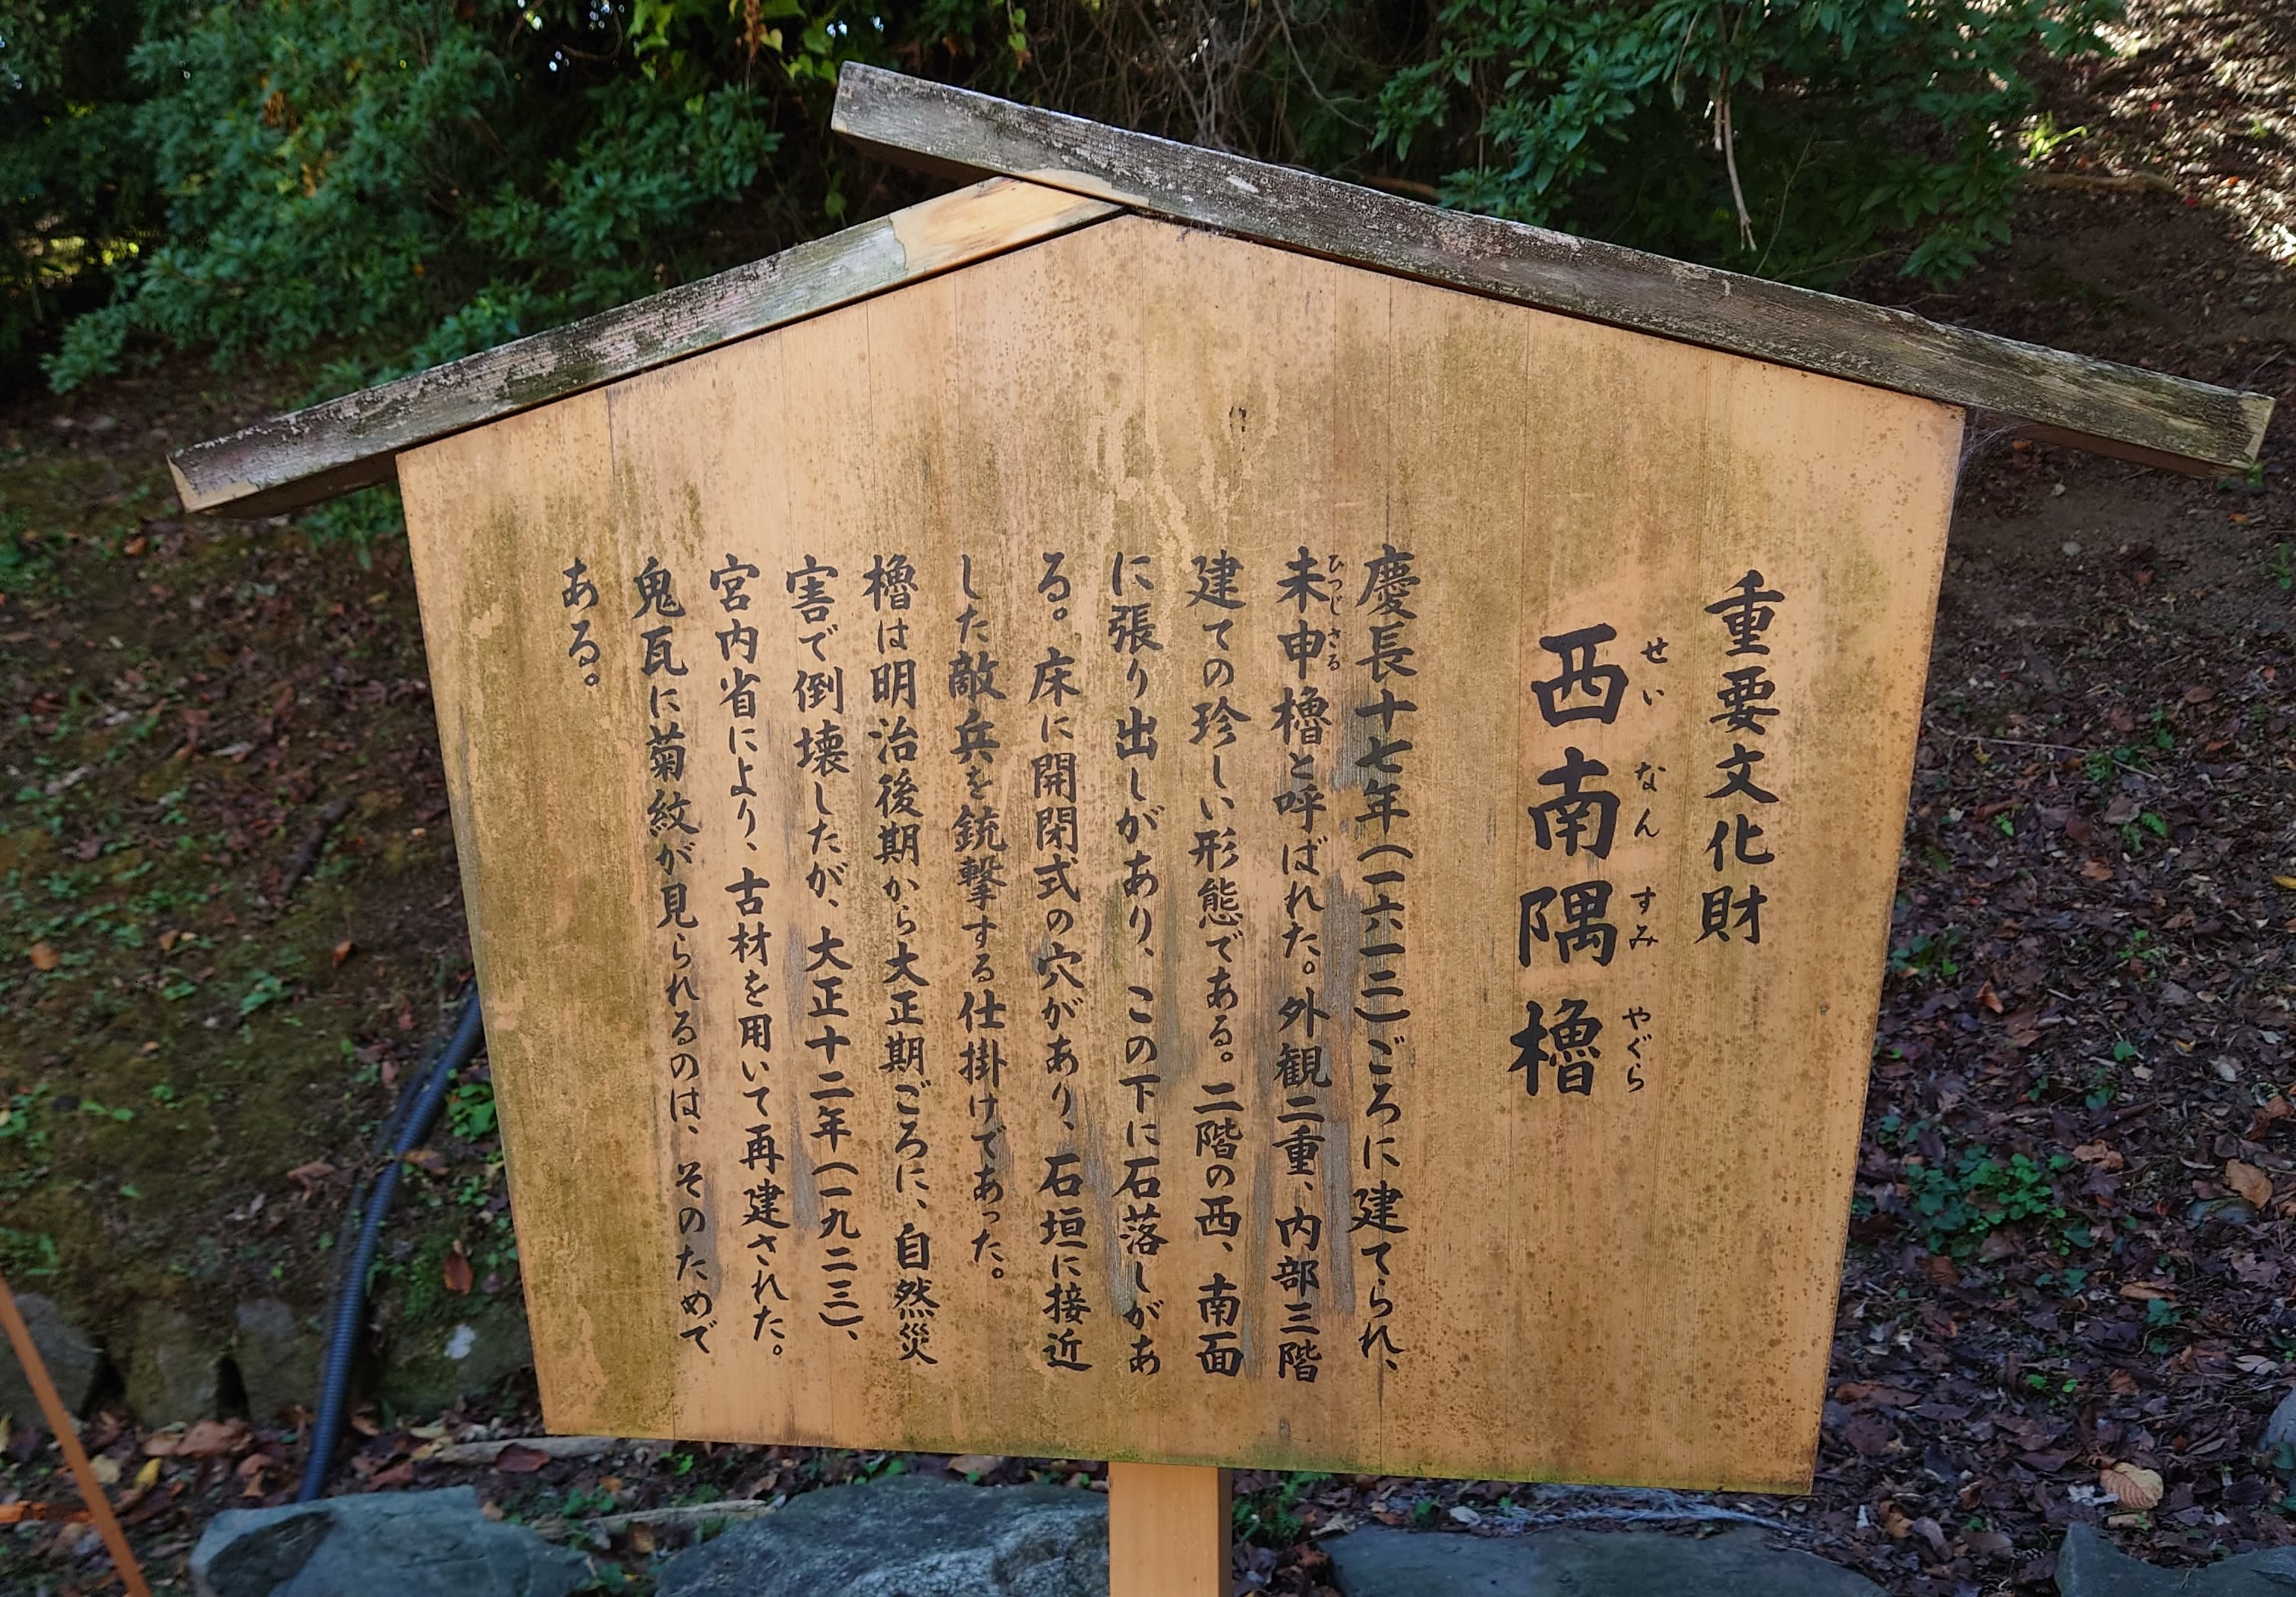 重要文化財
西南隅櫓
せいなんすみやぐら
慶長十七年(一六一二)ごろに建てられ、
未申櫓と呼ばれた。外観二重、内部三階
ひつじさる
建ての珍しい形態である。二階の西、南面
に張り出しがあり、この下に石落しがあ
る。床に開閉式の穴があり、石垣に接近
した敵兵を銃撃する仕掛けであった。
櫓は明治後期から大正期ごろに、自然災
害で倒壊したが、大正十二年(一九二三)、
宮内省により、古材を用いて再建された。
鬼瓦に菊紋が見られるのは、そのためで
ある。